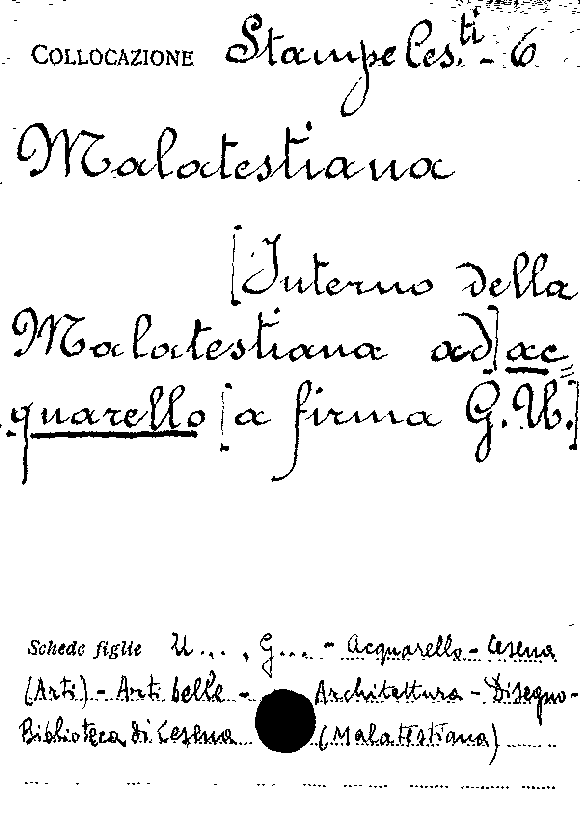 COLLOCAZIONE Stampe Ces.ti - 6
Malatestiana
[Interno della
Malatestiana ad] ac=
quarello [a firma G. U.]
Schede figlie U... , G... - Acquarello - Cesena
(Arti) - Arti belle - Architettura - Disegno -
Biblioteca di Cesena (Malatestiana)